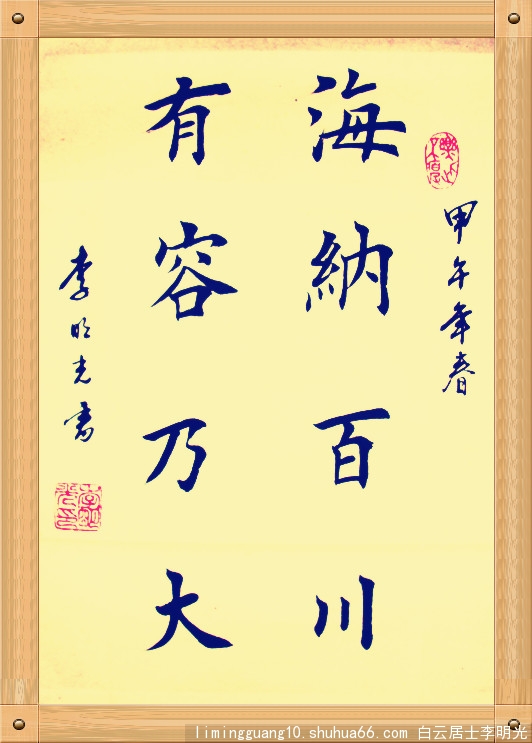 甲午年春
海納百川
有容乃大
李明光書
limingguang10.shuhua66.com 白云居士李明光